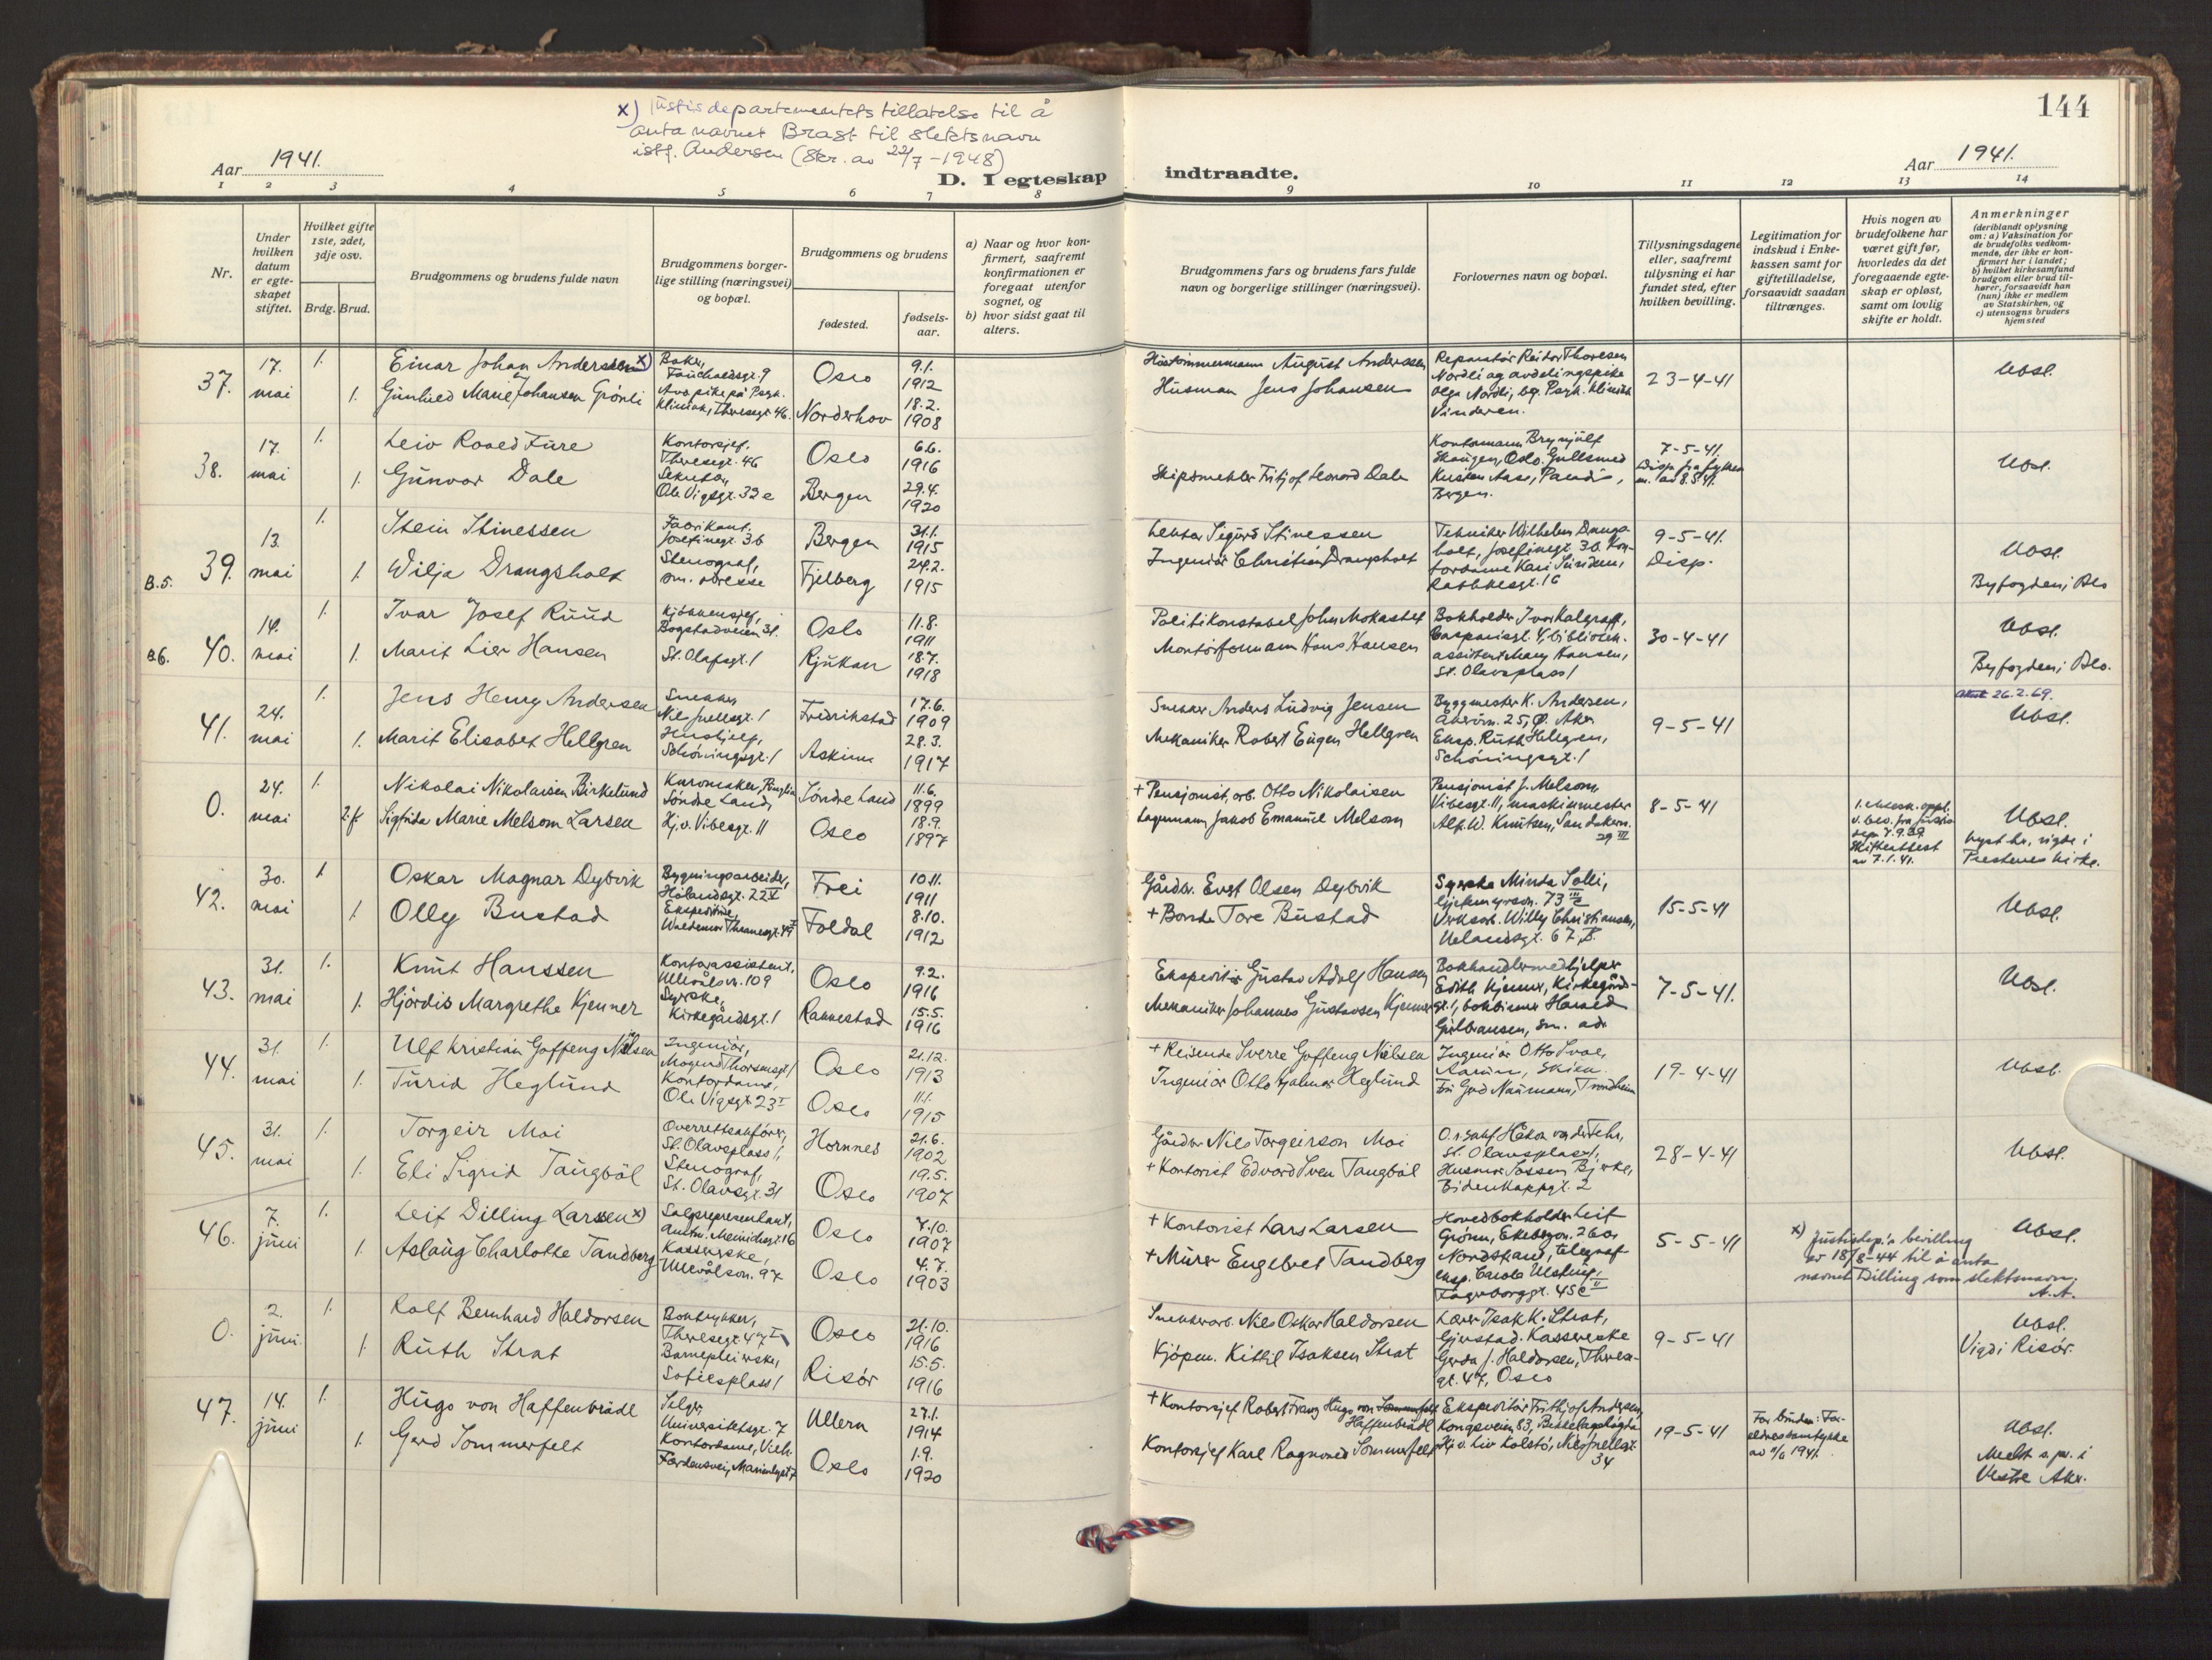 x) Justisdepartementets tillatelse til å
anta navnet Brast til slektsnavn
istf. Andersen (Skr. av 22/7-1948)
144
Aar 1941.
D. I egteskap indtraadte.
Aar 1941.
1 2 3 4 5 6 7 8 9 10 11 12 13 14
Nr.
Under hvilken datum er egte-skapet stiftet.
Hvilket gifte 1ste, 2det, 3dje osv.
Brdg. Brud.
Brudgommens og brudens fulde navn
Brudgommens borger-lige stilling (næringsvei) og bopæl.
Brudgommens og brudens
fødested.
fødsels-aar.
a) Naar og hvor kon-firmert, saafremt konfirmationen er foregaat utenfor sognet, og
b) hvor sidst gaat til alters.
Brudgommens fars og brudens fars fulde navn og borgerlige stillinger (næringsvei).
Forlovernes navn og bopæl.
Tillysningsdagene eller, saafremt tillysning ei har fundet sted, efter hvilken bevilling.
Legitimation for indskud i Enke-kassen samt for giftetilladelse, forsaavidt saadan tiltrænges.
Hvis nogen av brudefolkene har været gift før, hvorledes da det foregaaende egte-skap er opløst, samt om lovlig skifte er holdt.
Anmerkninger
(deriblandt oplysning om: a) Vaksination for de brudefolks vedkom-mende, der ikke er kon-firmert her i landet; b) hvilket kirkesamfund brudgom eller brud til-hører, forsaavidt han (hun) ikke er medlem av Statskirken, og c) utensogns bruders hjemsted
37. 17. mai 1. Einar Johan Anderssen x) Baker, Fauchaldsgt. 9 Oslo 9.1. 1912 August Anderssen 23-4-41 Ubsl.
1. Gunhild Marie Johansen Grönli Klinikk, Theresegt. 46. Norderhov 18.2. 1908 Husman Jens Johansen Vinderen.
38. 17. mai 1. Leiv Roald Fure Kontorsjef, Theresegt. 46 Oslo 6.6. 1916 Kontormann Brynjulf Haugen, Oslo. Gullsmed 7-5-41. Ubsl.
1. Gunvor Dale Ole Vigsgt. 32 c Bergen 29.4. 1920 Skipsmekler Fritjof Leonard Dale Bergen.
39. B.5. 13. mai 1. Stein Stinessen Fabrikant, Josefinegt. 36 Bergen 31.1. 1915 Lektor Sigurd Stinessen Tekniker Wilhelm Drangs-holt, Josefinegt. 30. 9-5-41. Disp. Ubsl.
1. Wilja Drangsholt Stenograf, sm. adresse Fjelberg 24.2. 1915 Ingeniör Christian Drangsholt Rathkesgt. 16 Byfogden i Oslo
40. B6. 14. mai 1. Ivar Josef Ruud Kjökkensjef, Bogstadveien 31. Oslo 11.8. 1911 Politikonstabel John Mokastet Bokholder Ivar Kalgraff, 30-4-41 Ubsl.
1. Marit Lier Hansen St. Olafsgt. 1 Rjukan 18.7. 1918 Montörformann Hans Hansen assistent Mary Hansen, St. Olavsplass 1 Byfogden i Oslo.
41. 24. mai 1. Jens Henry Andersen Snekker Niels Juelsgt. 1 Fredrikstad 17.6. 1909 Snekker Anders Ludvig Jensen Byggmester K. Andersen, 9-5-41 26.2.69. Ubsl.
1. Marit Elisabet Hellgren Schöningsgt. 1 Askim 28.3. 1917 Mekaniker Robert Eugen Hellgren Eksp. Ruth Hellgren, Schöningsgt. 1
0. 24. mai 1. Nikolai Nikolaisen Birkelund Söndre Land, Söndre Land 11.6. 1899 + Pensjonist, arb. Otto Nikolaisen Pensjonist J. Melsom, Vibesgt. 11, maskinmester 8-5-41 Skifteattest av 7.1.41. Ubsl.
2. f. Sigfrida Marie Melsom Larsen Hj. v. Vibesgt. 11 Oslo 18.9. 1897 Lagermann Jakob Emanuel Melsom Alf. W. Knutsen, 29 III
42. 30. mai 1 Oskar Magnar Dybvik Bygningsarbeider, Frei 10.11. 1911 Gårdbr. Evert Olsen Dybvik Syerske Minda Solli, 15-5-41 Ubsl.
1. Olly Bustad Ekspeditrise, Waldemar Thranesgt. Foldal 8.10. 1912 + Bonde Tore Bustad Verksarb. Willy Christiansen, Uelandsgt. 67
43. 31. mai 1. Knut Hanssen Kontorassistent, Ullevålsvn. 109 Oslo 9.2. 1916 Ekspeditör Gustav Adolf Hansen Bokhandlermedhjelper Edith Kjenner, Kirkegårds- 7-5-41. Ubsl.
1. Hjördis Margrethe Kjenner Syerske, Kirkegårdsgt. 1 Rakkestad 15.5. 1916 Mekaniker Johannes Gustavsen Kjenner gt. 1, bokbinner Harald Gulbransen, sm. adr
44. 31. mai 1. Ulf Kristian Goffeng Nielsen Ingeniör, Mogens Thorsensgt. 1 Oslo 21.12. 1913 + Reisende Sverre Goffeng Nielsen Ingeniör Otto 19-4-41 Ubsl.
1. Turid Heglund Kontordame, Ole Vigsgt. 23 I Oslo 11.1. 1915 Ingeniör Otto Hjalmar Heglund Gerd Naumann, Trondheim
45. 31. mai 1. Torgeir Moi Overrettsakförer, St. Olavsplass 1, Hornnes 21.6. 1902 Gårdbr Nils Torgeirson Moi O.r.sakf. Håkon von der Fehr, St. Olavsplass 1, 28-4-41 Ubsl.
1. Eli Sigrid Taugböl Stenograf, St. Olavsgt. 31 Oslo 19.5. 1907 + Kontorist Edvard Sven Taugböl Bidenkapsgt. 2
46. 7. juni 1. Leif Dilling Larssen x) Salgsrepresentant, Oslo 7.10. 1907 + Kontorist Lars Larsen Hovedbokholder Leif 5-5-41 x) Justisdep.'s bevilling av 18/8-44 til å anta navnet Dilling som slektsnavn. A.A. Ubsl.
1. Aslaug Charlotte Tandberg Kassererske, Ullevålsvn. 97 Oslo 4.7. 1903 + Murer Engelbret Tandberg Nordstrand, telegraf eksp. Fagerborggt. 45 c
0. 2. juni 1. Rolf Bernhard Haldorsen Boktrykker, Theresegt. 47 Oslo 21.10. 1916 Snekkerarb. Nils Oskar Haldorsen Lærer Isak K. Strat, 9-5-41 Ubsl.
1. Ruth Strat Barnepleierske, Sofiesplass 1 Risör 15.5. 1916 Kjöpm. Kittil Isaksen Strat Gjerstad. Kassererske Gerda J. Haldorsen, Therese-gt. 47, Oslo Vigdi Risör.
47. 14. juni 1. Hugo von Haffenbrädl Selger, Universitetsgt. 7 Ullern 27.1. 1914 + Kontorsjef Robert Franz Hugo von Haffenbrädl Ekspeditör Frithjof Andersen, Kongsveien 83, 19-5-41 For bruden: For-eldres samtykke av 11/6 1941. Ubsl.
1. Gerd Sommerfelt Kontordame, Oslo 1.9. 1920 Kontorsjef Karl Ragnvald Sommerfelt Hj. v. Liv Kolstö, Niels Juelsgt. 34 Meldt s. pr. i Vestre Aker.